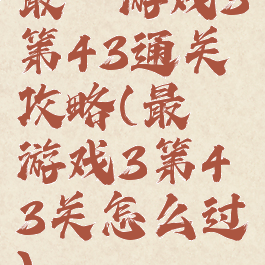 最 游戏3
第43通关
攻略(最
游戏3第4
3关怎么过
)